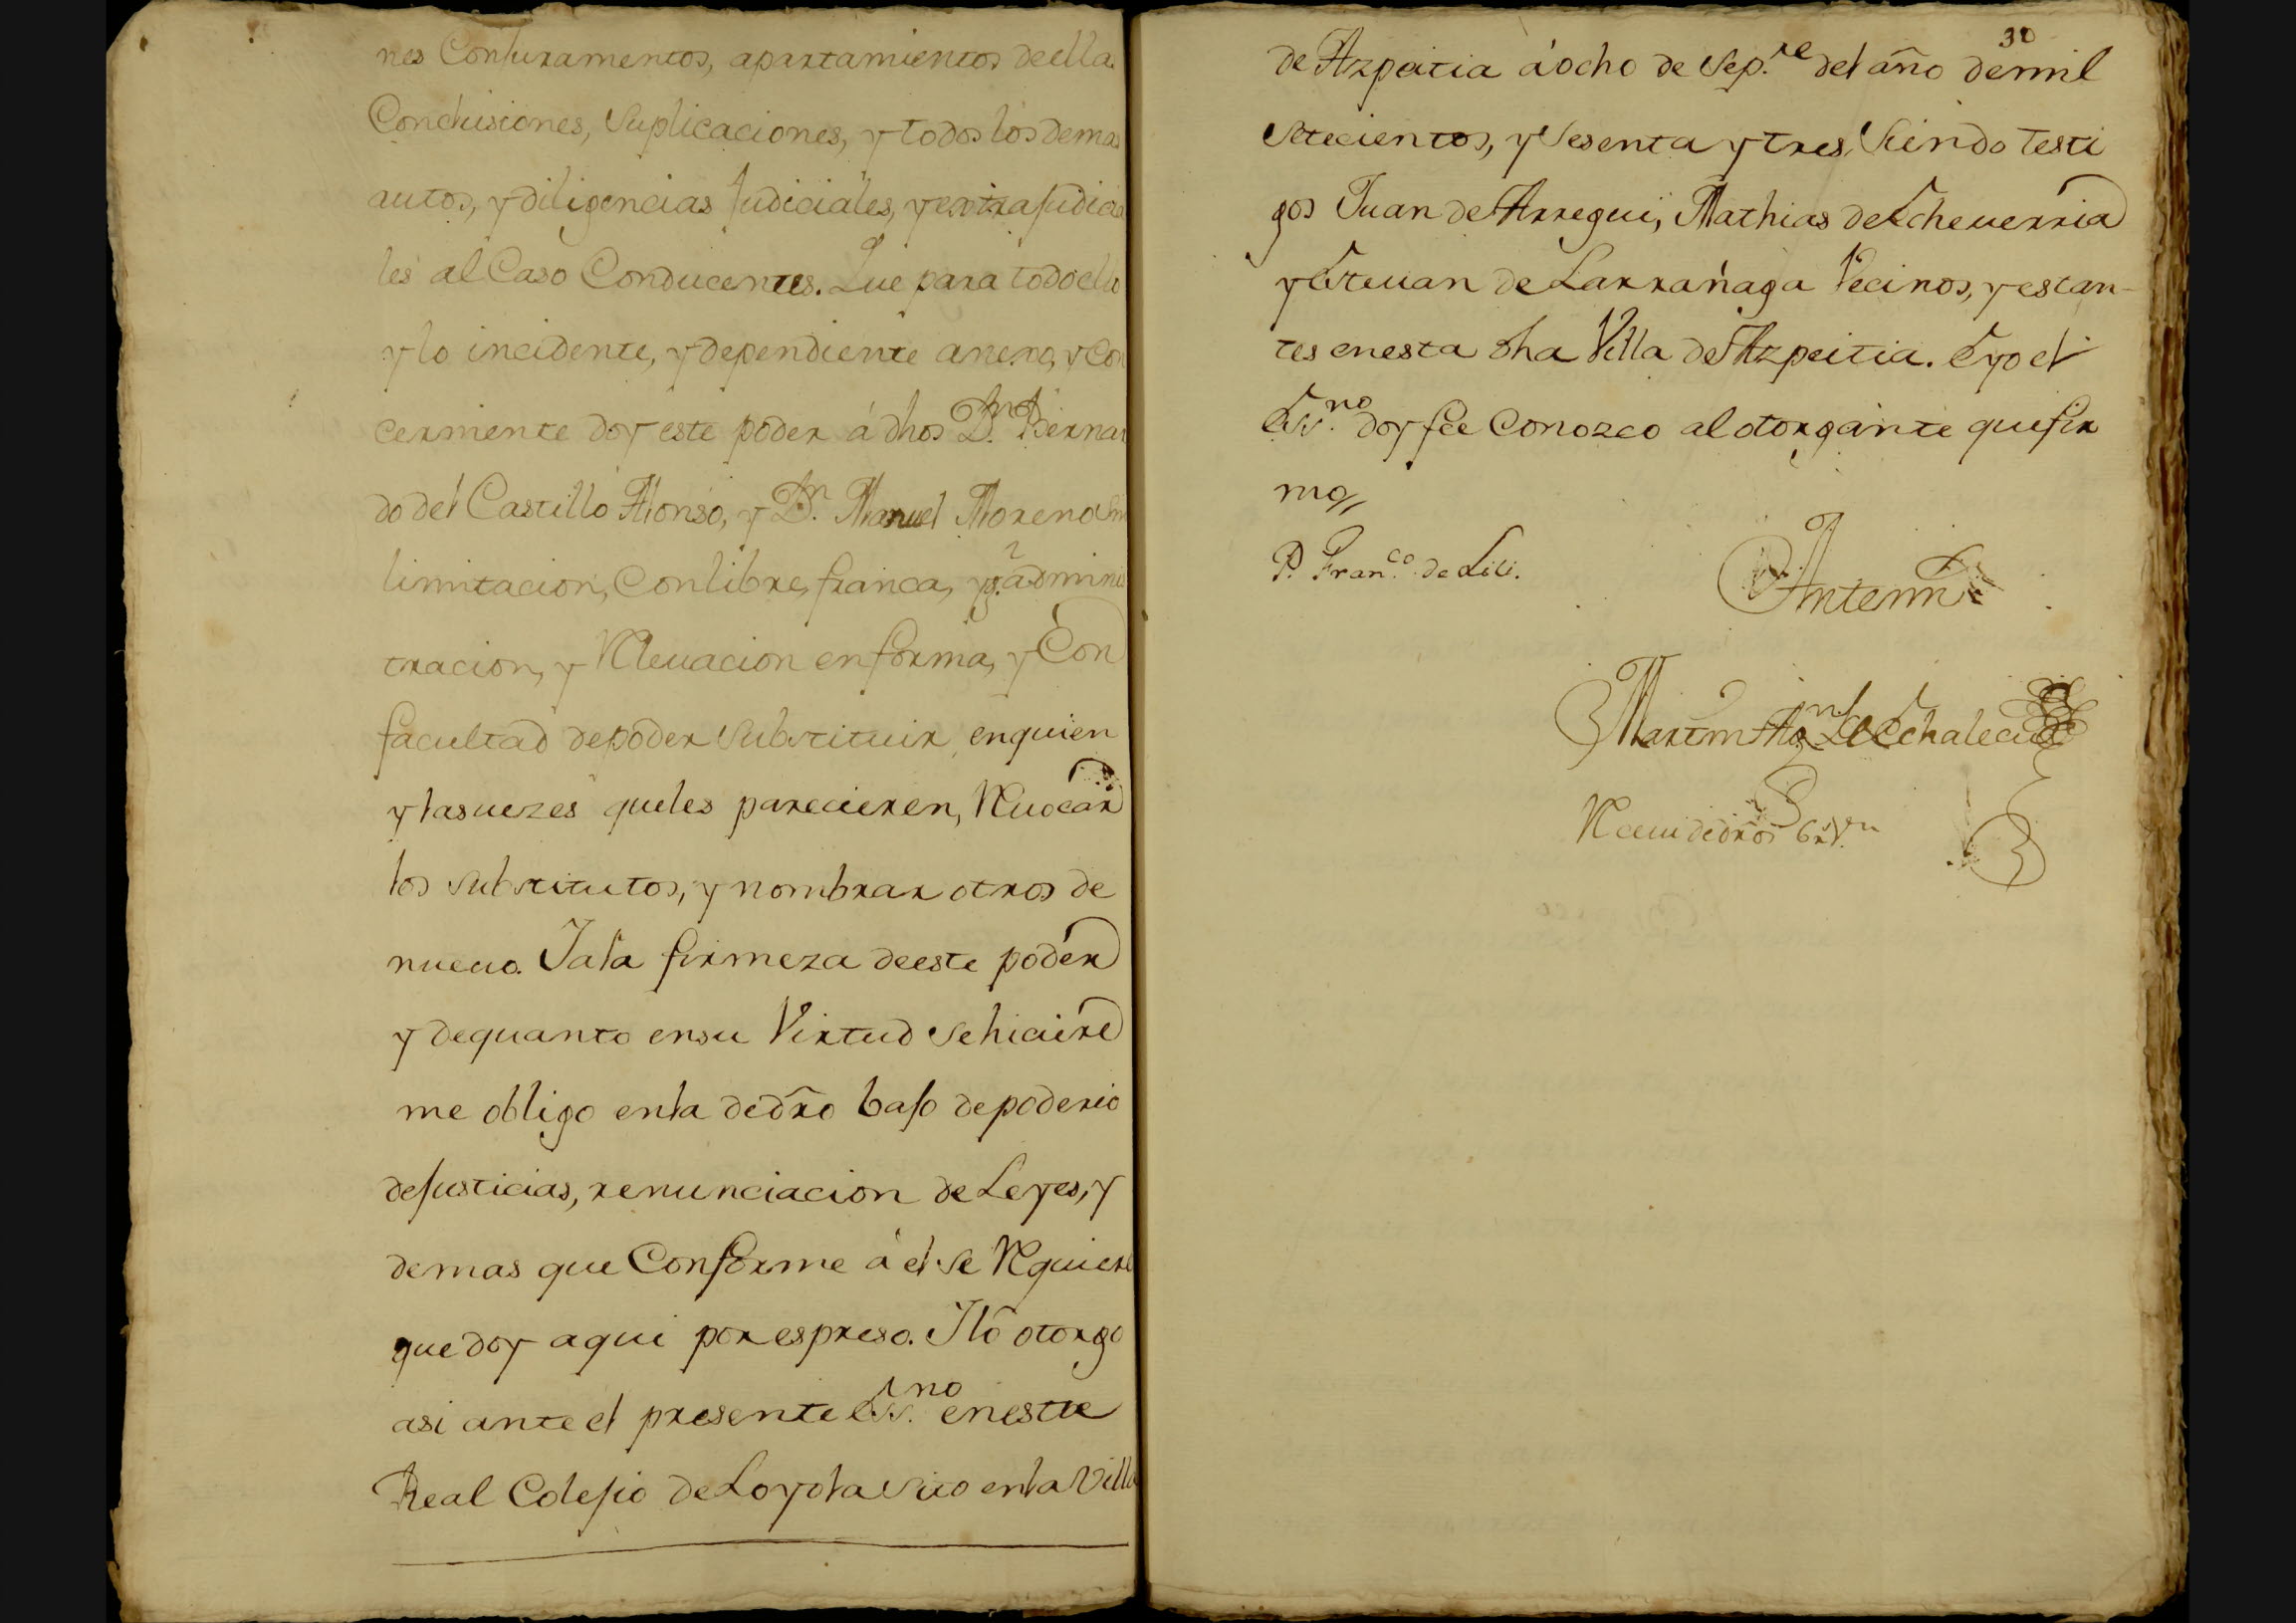 nes Conjuramentos, apartamientos de ella
Conclusiones, Suplicaciones, y todos los demas
autos, y diligencias Judiciales, y extrajudicia
les al Caso Conducentes. Que para todo ello
y lo incidente, y dependiente anexo, y Con
cerniente doy este poder á dhos Dn. Bernar
do del Castillo Alonso, y Dn. Manuel Moreno Sin
limitacion, Con libre, franca, y gl. adminis
tracion, y Relevacion en forma, y Con
facultad de poder Substituir, en quien
y las vezes que les parecieren, Revocar
los substitutos, y nombrar otros de
nuevo. Y a la firmeza de este poder
y de quanto en su Virtud se hiciere
me obligo en la de dr̃o bajo de poderio
de Justicias, renunciacion de Leyes, y
demas que Conforme á el se Requiere
que doy aqui por espreso. Y lo otorgo
asi ante el presente Ess.no en este
Real Colejio de Loyola sito en la Villa
30
de Azpeitia á ocho de Sep.re del año de mil
Setecientos, y Sesenta y tres, Siendo Testi
gos Juan de Arregui, Mathias de Echeverria
y Estevan de Larrañaga Vecinos, y estan-
tes en esta dha Villa de Azpeitia. E yo el
Ess.no doy fee Conozco al otorgante que fir
mo
P. Fran.co de Lili.
Antemi
Martin